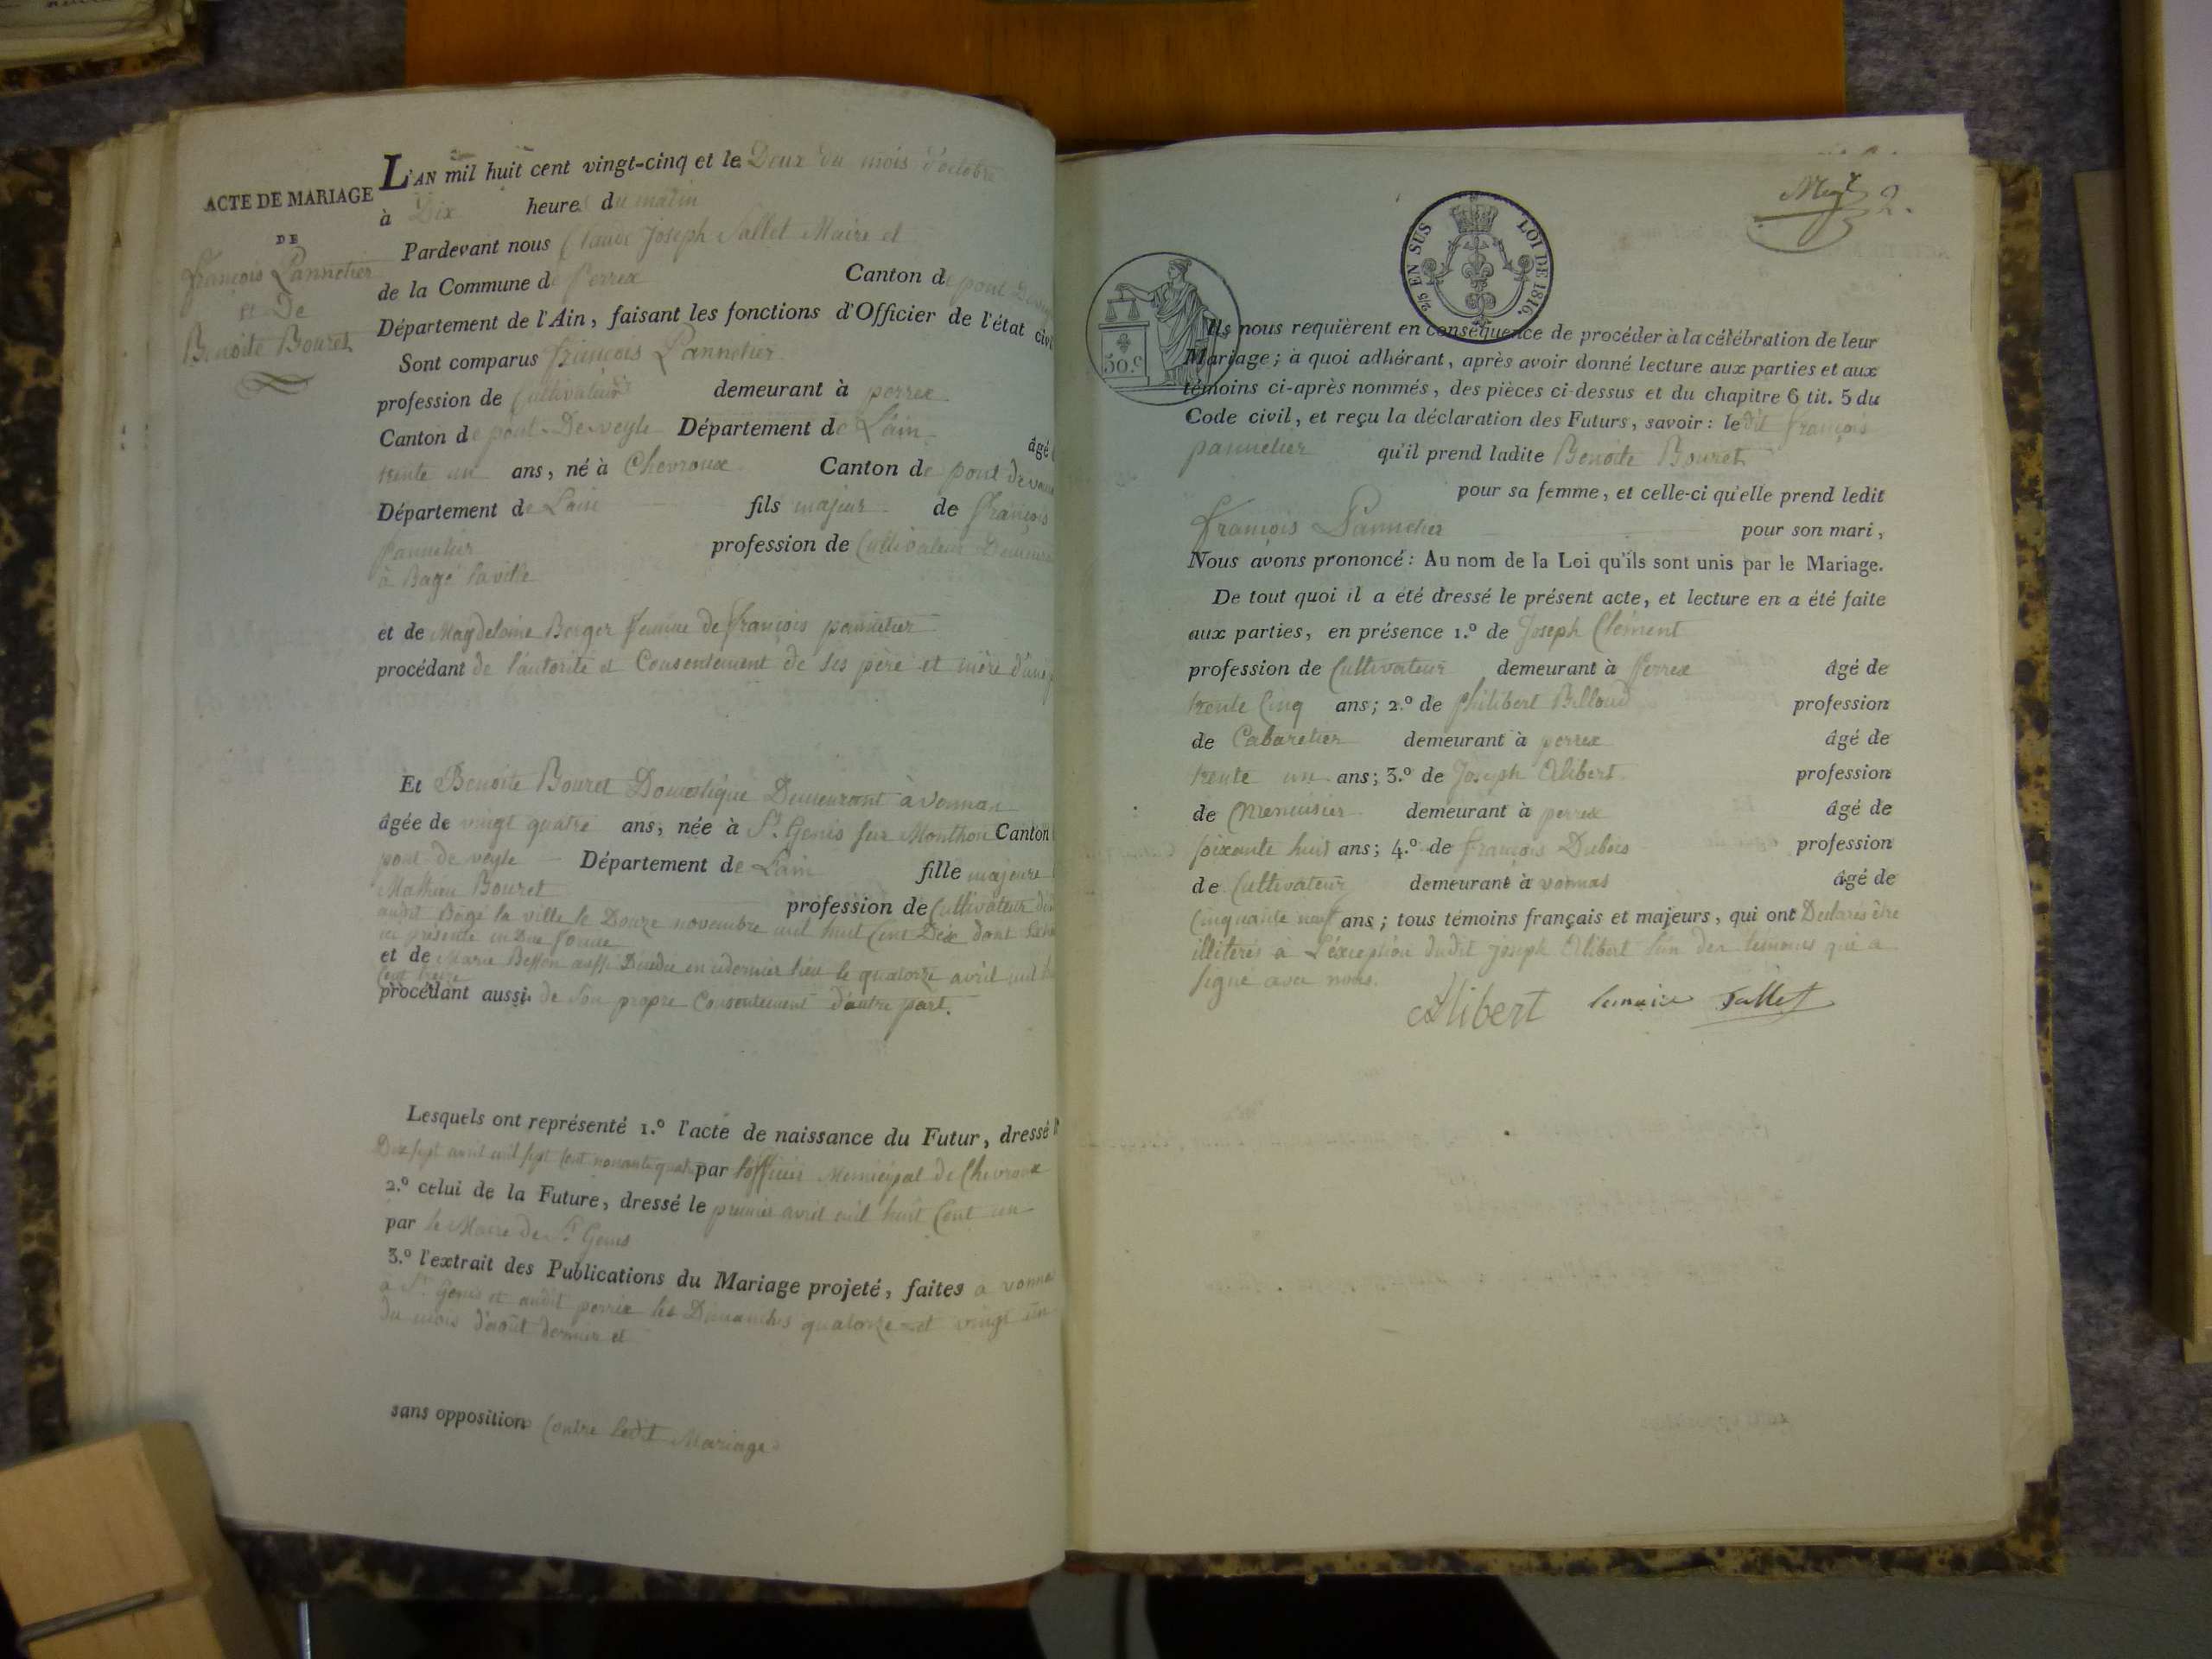 ACTE DE MARIAGE
DE
François Pannetier
et De
Benoite Bouret
L'AN mil huit cent vingt-cinq et le Deux du mois d'octobre
à Dix heures du matin
Pardevant nous Claude Joseph Sallet Maire et
de la Commune de Perrex Canton de pont De
Département de l'Ain, faisant les fonctions d'Officier de l'état civil
Sont comparus françois Pannetier
profession de Cultivateur demeurant à perrex
Canton de pont-De-veyle Département de Lain âgé
trente un ans, né à Chevroux Canton de pont de vaux
Département de Lain fils majeur de François
Pannetier profession de Cultivateur Demeurant
à Bagé la ville
et de Magdelaine Berger femme de françois pannetier
procédant de l'autorité et Consentement de ses père et mère d'une
Et Benoite Bouret Domestique Demeurant à Vonnas
âgée de vingt quatre ans, née à St. Genis sur Monthon Canton
pont de veyle Département de Lain fille majeure
Mathieu Bouret profession de Cultivateur
audit Bagé la ville le Douze novembre mil huit Cent Dix dont
ici présenté en Due forme
et de Marie Besson aussi Décédée en dernier lieu le quatorze avril mil
Cent treize
procédant aussi de son propre Consentement d'autre part.
Lesquels ont représenté 1.º l'acte de naissance du Futur, dressé
Dix sept avril mil sept Cent nonante quatre par l'officier Municipal de Chevroux
2.º celui de la Future, dressé le premier avril mil huit Cent un
par le Maire de St. Genis
3.º l'extrait des Publications du Mariage projeté, faites a vonnas
a St. Genis et audit perrex les Dimanches quatorze et vingt un
du mois d'août dernier et
sans opposition Contre ledit Mariage
2.
2/5 EN SUS LOI DE 1816.
50.C
Ils nous requièrent en conséquence de procéder à la célébration de leur
Mariage; à quoi adhérant, après avoir donné lecture aux parties et aux
témoins ci-après nommés, des pièces ci-dessus et du chapitre 6 tit. 5 du
Code civil, et reçu la déclaration des Futurs, savoir: le dit françois
pannetier qu'il prend ladite Benoite Bouret
pour sa femme, et celle-ci qu'elle prend ledit
François Pannetier pour son mari,
Nous avons prononcé: Au nom de la Loi qu'ils sont unis par le Mariage.
De tout quoi il a été dressé le présent acte, et lecture en a été faite
aux parties, en présence 1.º de Joseph Clément
profession de Cultivateur demeurant à Perrex âgé de
trente Cinq ans; 2.º de philibert Billoud profession
de Cabaretier demeurant à perrex âgé de
trente un ans; 3.º de Joseph Alibert profession
de Menuisier demeurant à perrex âgé de
soixante huit ans; 4.º de françois Dubois profession
de Cultivateur demeurant à vonnas âgé de
Cinquante neuf ans; tous témoins français et majeurs, qui ont Declarés être
illiterés à L'éxception dudit joseph Alibert l'un des témoins qui a
signé avec nous.
Alibert Sallet